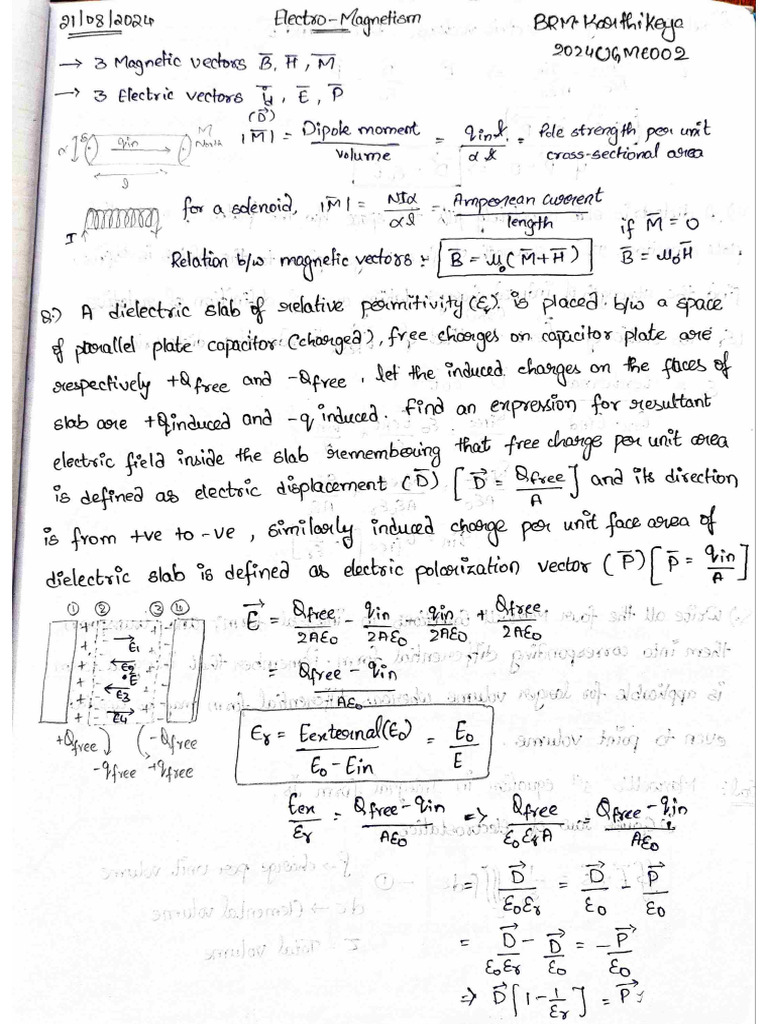 21/08/2024 Electro-Magnetism BRM-Karthikeya
2024UGME002
→ 3 Magnetic vectors B̅, H̅, M̅
→ 3 Electric vectors , E̅, P̅
(D̅)
|M̅| = Dipole moment / volume = qin l / α l = Pole strength per unit cross-sectional area
qin M North
l
for a solenoid, |M̅| = NIα / αl = Amperean current / length if M̅ = 0
I
Relation b/w magnetic vectors :- B̅ = μ₀(M̅+H̅) B̅ = μ₀H̅
Q.) A dielectric slab of relative permitivity (εr) is placed b/w a space
of parallel plate capacitor (charged), free charges on capacitor plate are
respectively +Qfree and -Qfree. let the induced charges on the faces of
slab are +qinduced and -q induced. Find an expression for resultant
electric field inside the slab remembering that free charge per unit area
is defined as electric displacement (D⃗) [D⃗ = Qfree / A] and its direction
is from +ve to -ve, similarly induced charge per unit face area of
dielectric slab is defined as electric polarization vector (P̅) [P̅ = qin / A]
① ② ③ ④
E⃗ = Qfree / 2Aε₀ - qin / 2Aε₀ - qin / 2Aε₀ + Qfree / 2Aε₀
E1
E2
E
E3
E4
= Qfree - qin / Aε₀
+Qfree -Qfree
-qfree +qfree
εr = Eexternal(E₀) / E₀ - Ein = E₀ / E
Eex / εr = Qfree - qin / Aε₀ => Qfree / ε₀εrA = Qfree - qin / Aε₀
= D⃗ / ε₀εr = D⃗ / ε₀ - P⃗ / ε₀
= D⃗ / ε₀εr - D⃗ / ε₀ = -P⃗ / ε₀
=> D⃗[1 - 1/εr] = P⃗